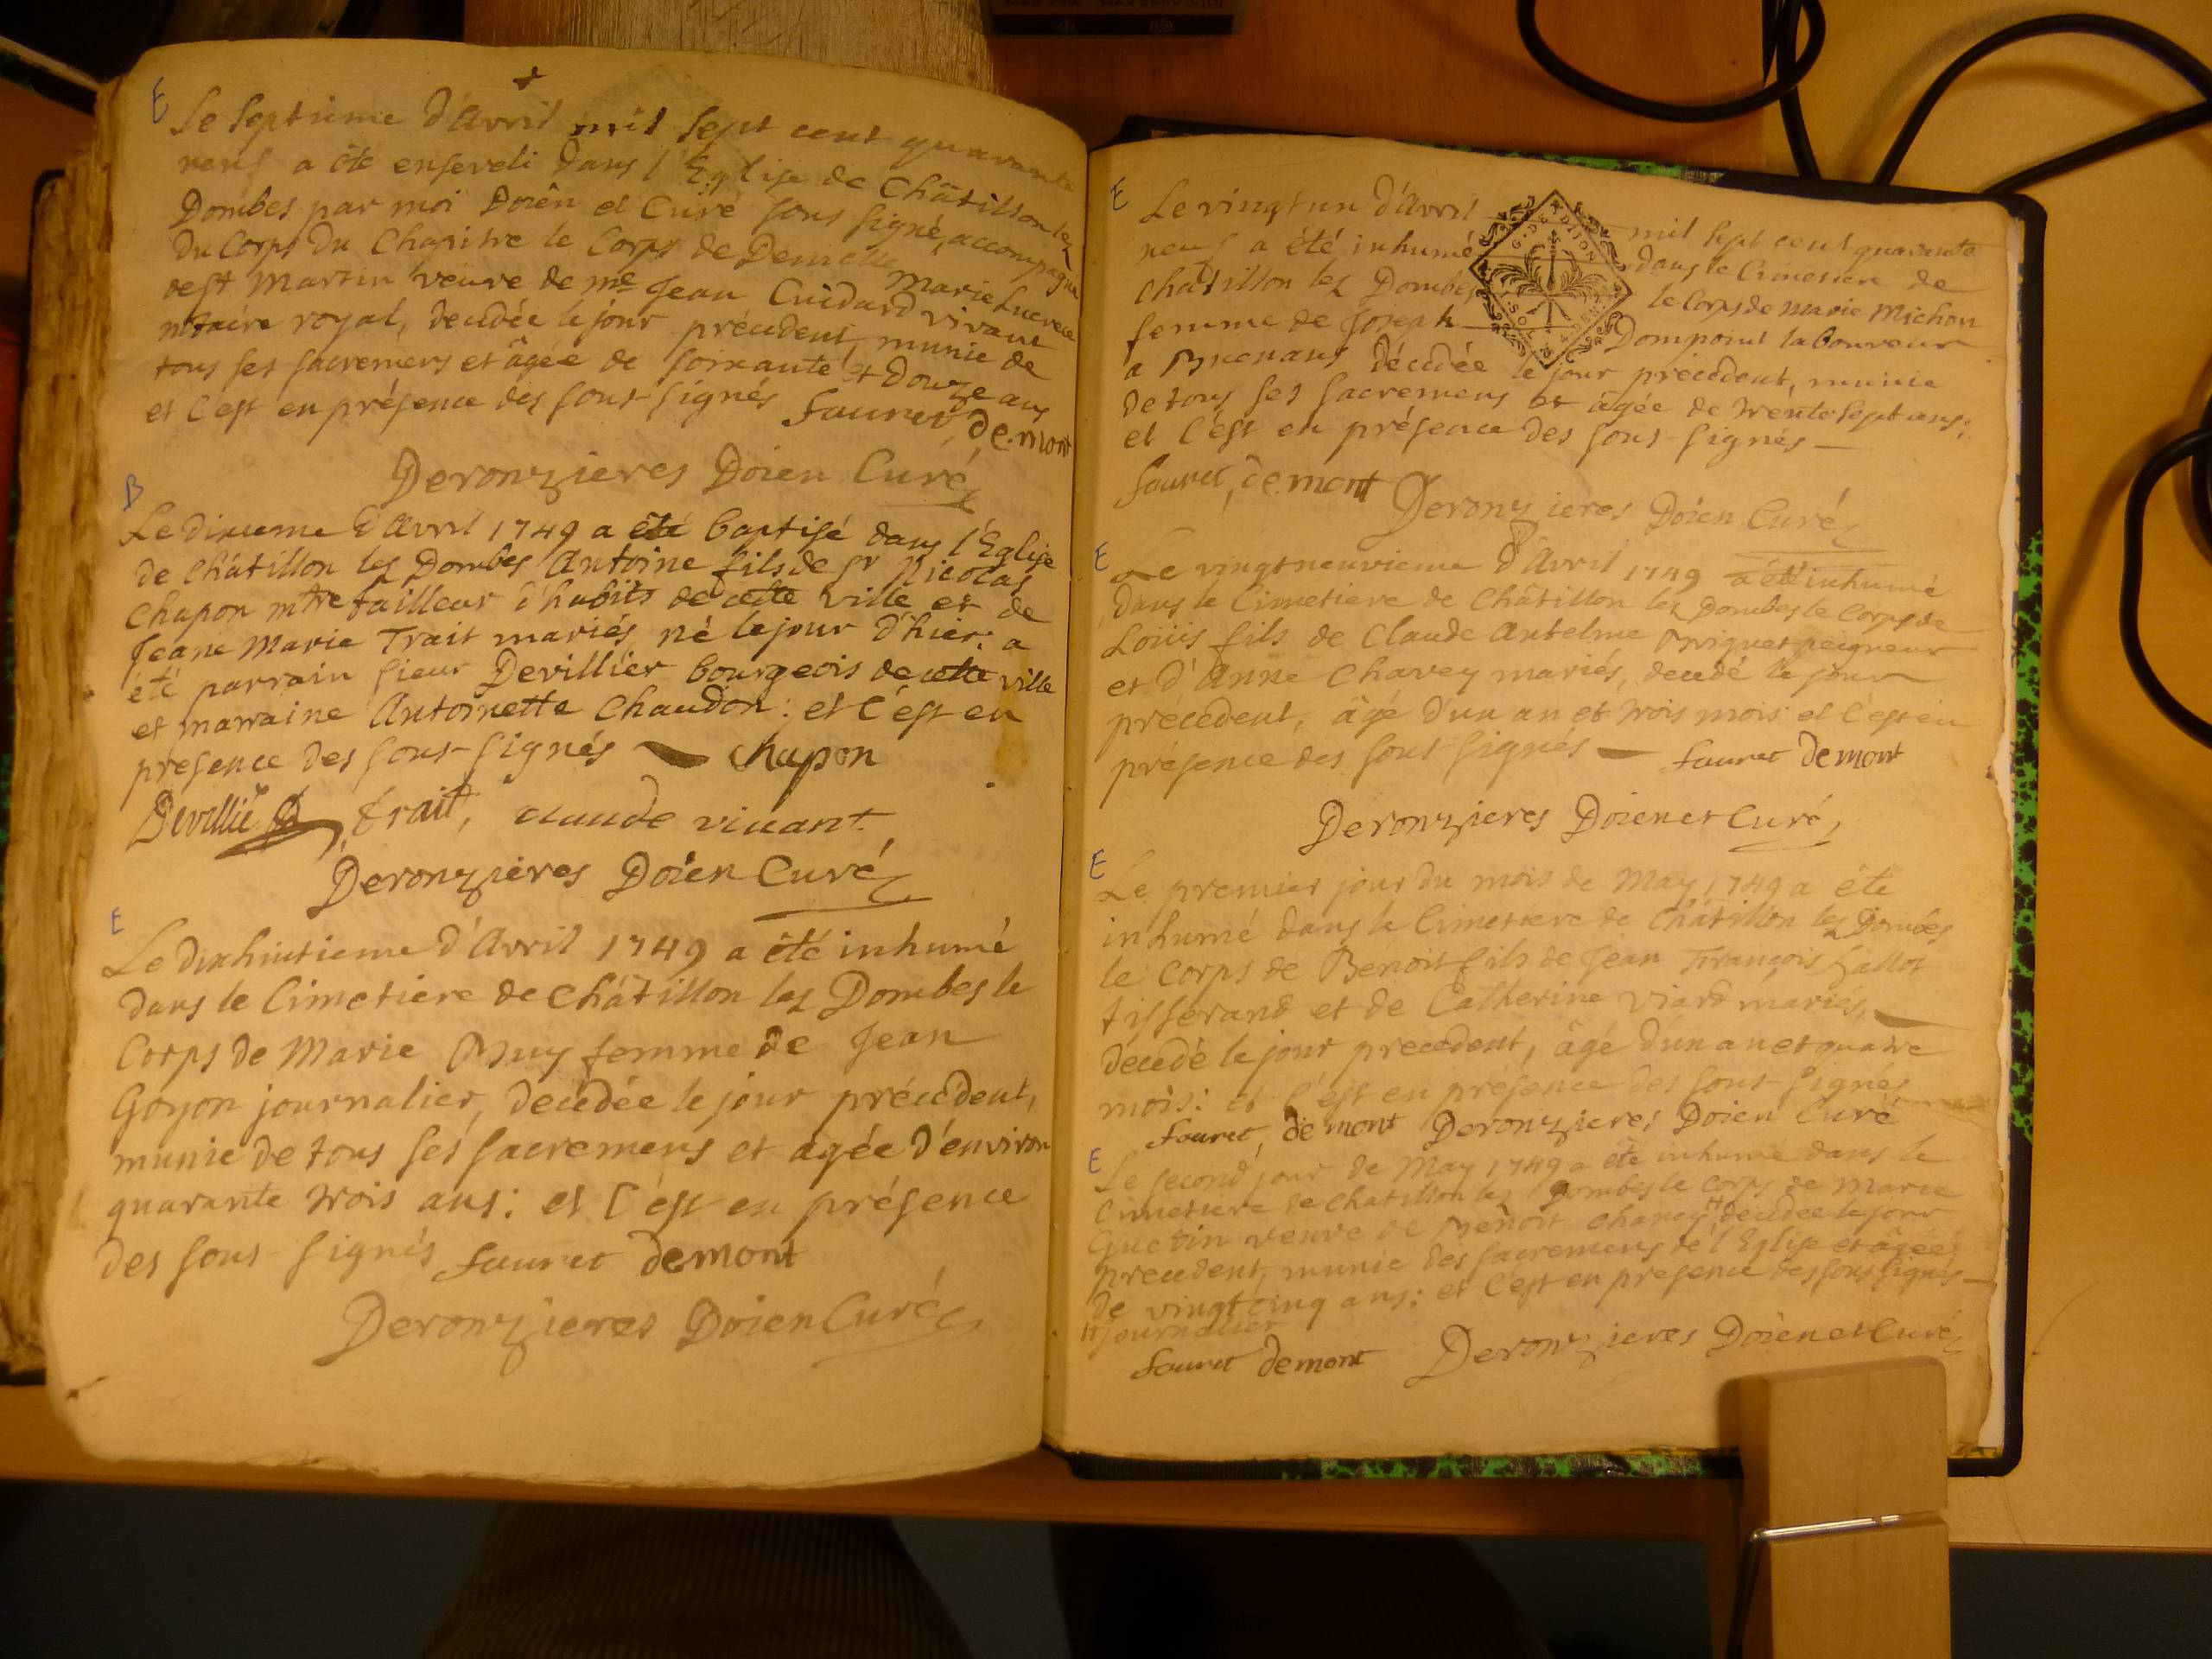 E
Le septieme d'avril mil sept cent quarante
neuf a été enseveli dans l'Eglise de Châtillon les
Dombes par moi Doïen et Curé sous signé, accompagné
du Corps du Chapitre le Corps de Demelle Marie Lucrece
Martin veuve de me Jean Cuidard vivant
notaire royal, decedée le jour précedent, munie de
tous ses sacremens et âgée de soixante et douze ans
et c'est en présence des sous-signés Sauret, demont
Deronzieres Doïen Curé
B
Le dixieme d'avril 1749 a été baptisé dans l'Eglise
de Châtillon les Dombes Antoine fils de Sr Nicolas
Chapon mtre tailleur d'habits de cette ville et de
Jeane Marie Trait mariés, né le jour d'hier: a
été parrain sieur Devillier bourgeois de cette ville
et marraine Antoinette Chaudon: et c'est en
presence des sous-signés — Chapon
Devillié, trait, claude vivant
Deronzieres Doïen Curé
E
Le dixhuitieme d'Avril 1749 a été inhumé
dans le Cimetiere de Châtillon les Dombes le
Corps de Marie Buy femme de Jean
Goyon journalier, decedée le jour précédent,
munie de tous ses sacremens et agée d'environ
quarante trois ans: et c'est en présence
des sous-signés Sauret demont
Deronzieres Doïen Curé
E
Le vingt un d'Avril mil sept cent quarante
neuf a été inhumé dans le Cimetiere de
chatillon les Dombes le Corps de Marie Michon
femme de Joseph Dompoint laboureur
a Buenans décédée le jour précédent, munie
de tous ses sacremens et âgée de trente sept ans;
et c'est en présence des sous-signés —
Sauret, demont Deronzieres Doïen Curé
E
Le vingt neuvieme d'Avril 1749 a été inhumé
dans le Cimetiere de Châtillon les Dombes le Corps de
Loüis fils de Claude Antelme peigneur
et d'Anne Chavey mariés, decedé le jour
précedent, âgé d'un an et trois mois et c'est en
présence des sous-signés — Sauret demont
Deronzieres Doïen et Curé
E
Le premier jour du mois de May 1749 a été
inhumé dans le Cimetiere de Châtillon les Dombes
le Corps de Benoit fils de Jean François Hallot
tisserand et de Catherine Viard mariés,
décedé le jour precedent, âgé d'un an et quatre
mois: et c'est en présence des sous-signés
Sauret, demont Deronzieres Doïen Curé
E
Le second jour de May 1749 a été inhumé dans le
Cimetiere de chatillon les Dombes le Corps de Marie
Guetin veuve de Benoit Chaney # decedée le jour
precedent, munie des sacremens de l'Eglise et âgée
de vingt cinq ans: et c'est en presence des sous signés —
# journalier
Sauret demont Deronzieres Doïen et Curé